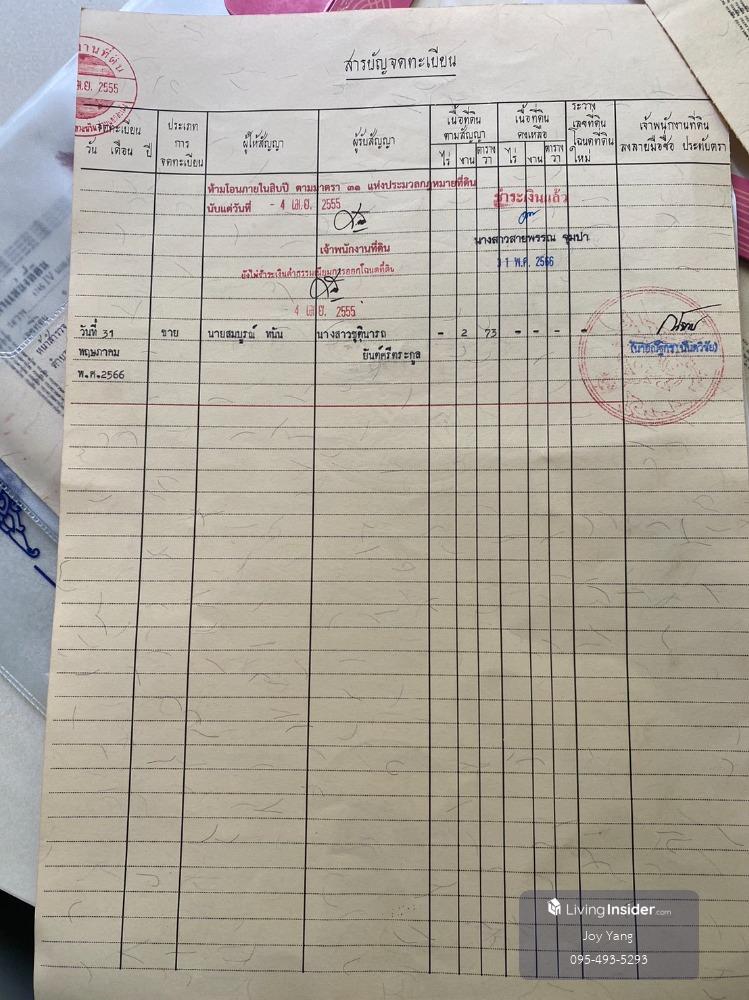 สารบัญจดทะเบียน
2555
จดทะเบียน
วัน เดือน ปี
ประเภท
การ
จดทะเบียน
ผู้ให้สัญญา
ผู้รับสัญญา
เนื้อที่ดิน
ตามสัญญา
ไร่ งาน ตาราง
วา
เนื้อที่ดิน
คงเหลือ
ไร่ งาน ตาราง
วา
ระวาง
เลขที่ดิน
โฉนดที่ดิน
ใหม่
เจ้าพนักงานที่ดิน
ลงลายมือชื่อ ประทับตรา
ห้ามโอนภายในสิบปี ตามมาตรา ๓๑ แห่งประมวลกฎหมายที่ดิน
นับแต่วันที่ - 4 เม.ย. 2555
ชำระเงินแล้ว
เจ้าพนักงานที่ดิน
นางสาวสายพรรณ ชุมปา
31 พ.ค. 2566
ยังไม่ชำระเงินค่าธรรมเนียมการออกโฉนดที่ดิน
4 เม.ย. 2555
วันที่ 31 ขาย นายสมบูรณ์ ทนัน นางสาวชุตินารถ - 2 73 - - - -
พฤษภาคม ยันต์ศรีตระกูล
พ.ศ.2566
LivingInsider.com
Joy Yang
095-493-5293